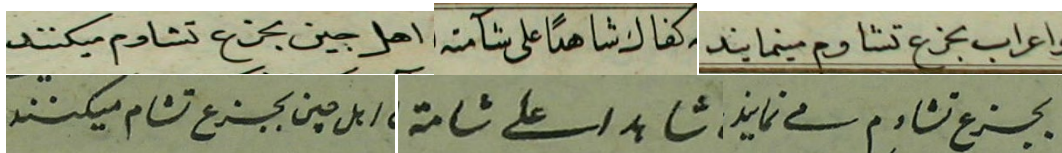 واعراب بجزع تشاوم مینمایند کفاك شاهدًا علی شآمته اهل جین بجزع تشاوم میکنند
بجزع تشاوم می نمایند شاهد ا علی شامته اهل چین بجزع تشام میکنند